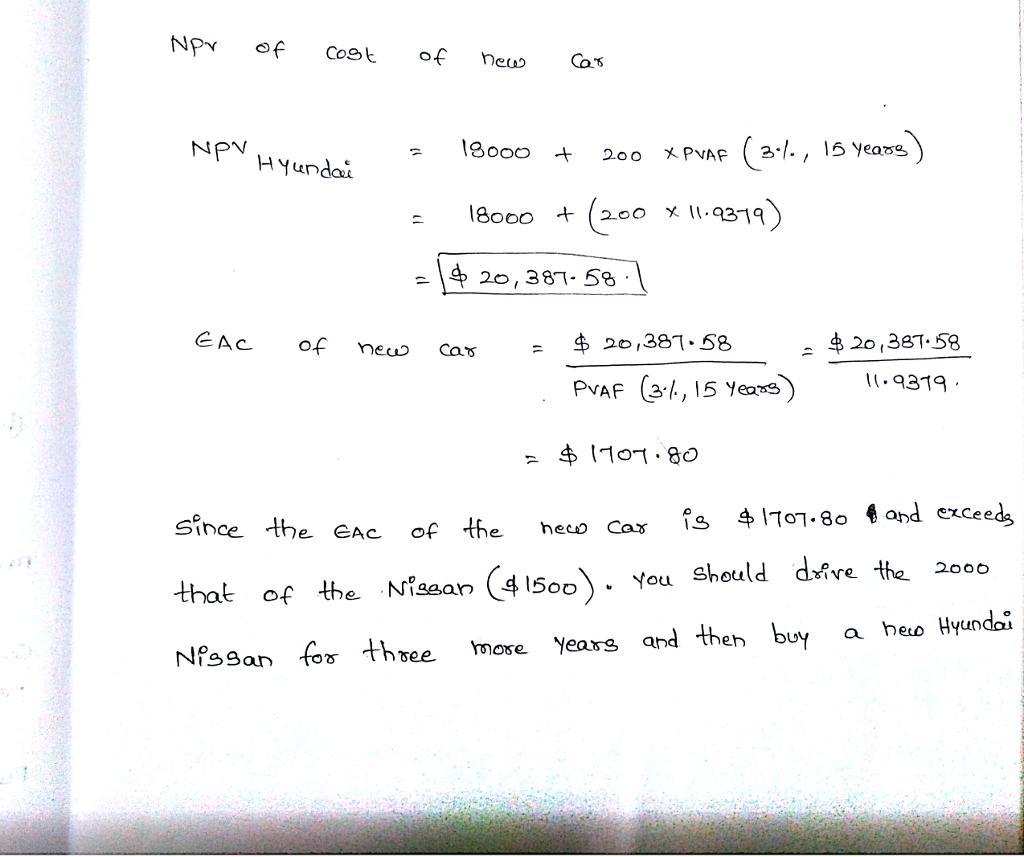 NPV of cost of new car
NPV Hyundai = 18000 + 200 × PVAF (3%, 15 years)
= 18000 + (200 × 11.9379)
= $ 20,387.58.
EAC of new car = $ 20,387.58 / PVAF (3%, 15 years) = $ 20,387.58 / 11.9379.
= $ 1707.80
Since the EAC of the new car is $1707.80 and exceeds
that of the Nissan ($1500). You should drive the 2000
Nissan for three more years and then buy a new Hyundai